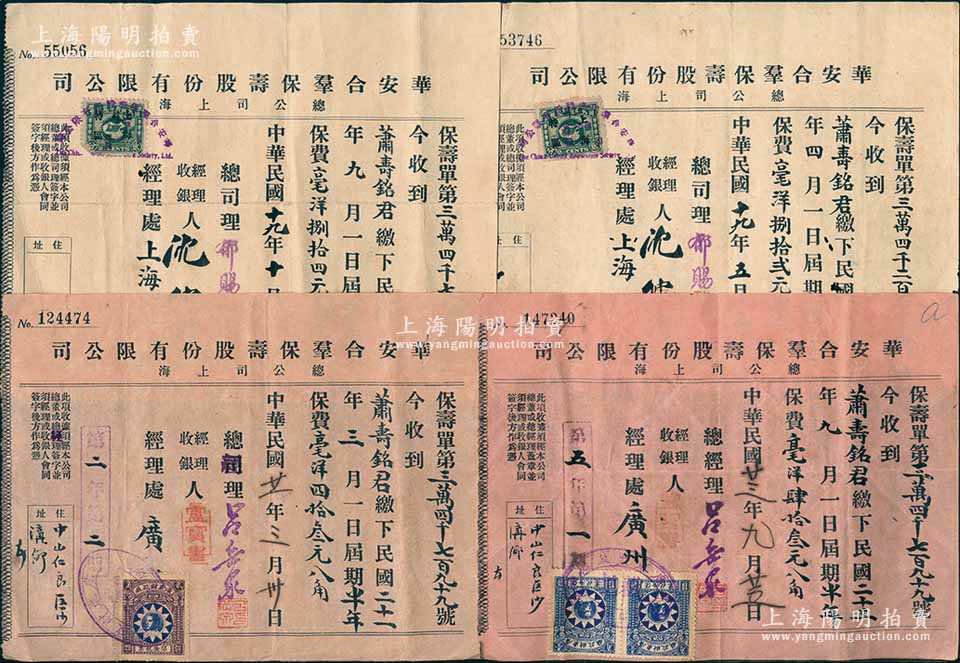 No. 55056
華安合羣保壽股份有限公司
總公司上海
保壽單第三萬四千七
今收到
蕭壽銘君繳下民
年九月一日屆
保費毫洋捌拾四元
中華民國十九年十日
總司理 郁賜
經理
收銀人 沈
經理處 上海
此項收據須經本公司
總董或總司理簽字並
須經理或收銀人會同
簽字後方作為憑
住址
Society, Ltd.
53746
華安合羣保壽股份有限公司
總公司上海
保壽單第三萬四千二百
今收到
蕭壽銘君繳下民國
年四月一日屆期
保費毫洋捌拾弍元
中華民國十九年五
總司理 郁賜
經理
收銀人 沈
經理處 上海
No. 124474
華安合羣保壽股份有限公司
總公司上海
保壽單第三萬四千七百九十九號
今收到
蕭壽銘君繳下民國二十一
年三月一日屆期半年
保費毫洋四拾叁元八角
中華民國廿一年三月卅日
總經理 呂岳泉
經理
收銀人
經理處 廣
此項收據須經本公司
總董或總經理簽字並
須經理或收銀人會同
簽字後方作為憑
住址
中山仁良區沙
No. 147240
華安合羣保壽股份有限公司
總公司上海
保壽單第三萬四千七百九十九號
今收到
蕭壽銘君繳下民國二十三
年九月一日屆期半年
保費毫洋肆拾叁元八角
中華民國廿三年九月廿五日
總經理 呂岳泉
經理
收銀人
經理處 廣州
此項收據須經本公司
總董或總經理蓋章並
須經理或收銀人會同
簽字後方作為憑
住址
中山仁良區沙
a
上海陽明拍賣
www.yangmingauction.com
上海陽明拍賣
www.yangmingauction.com
上海陽明拍賣
www.yangmingauction.com
上海陽明拍賣
www.yangmingauction.com
上海陽明拍賣
www.yangmingauction.com